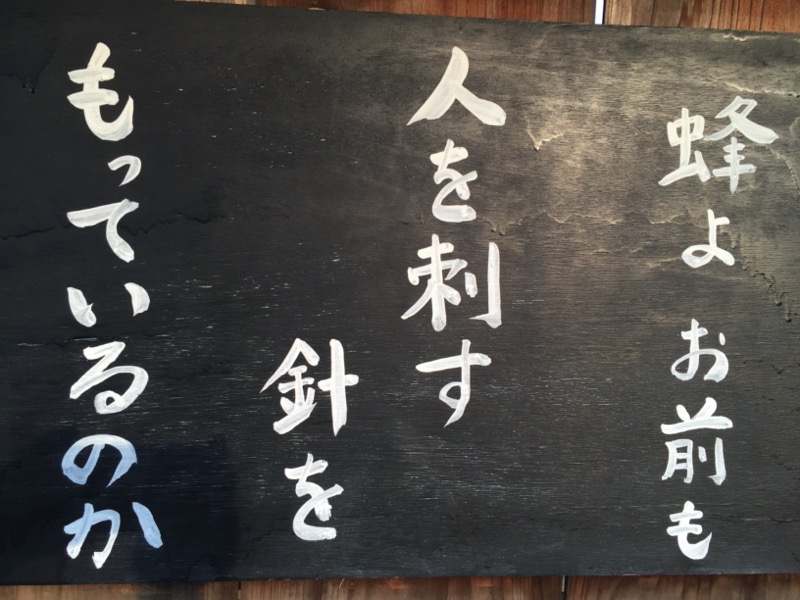 蜂よお前も
人を刺す
針を
もっているのか